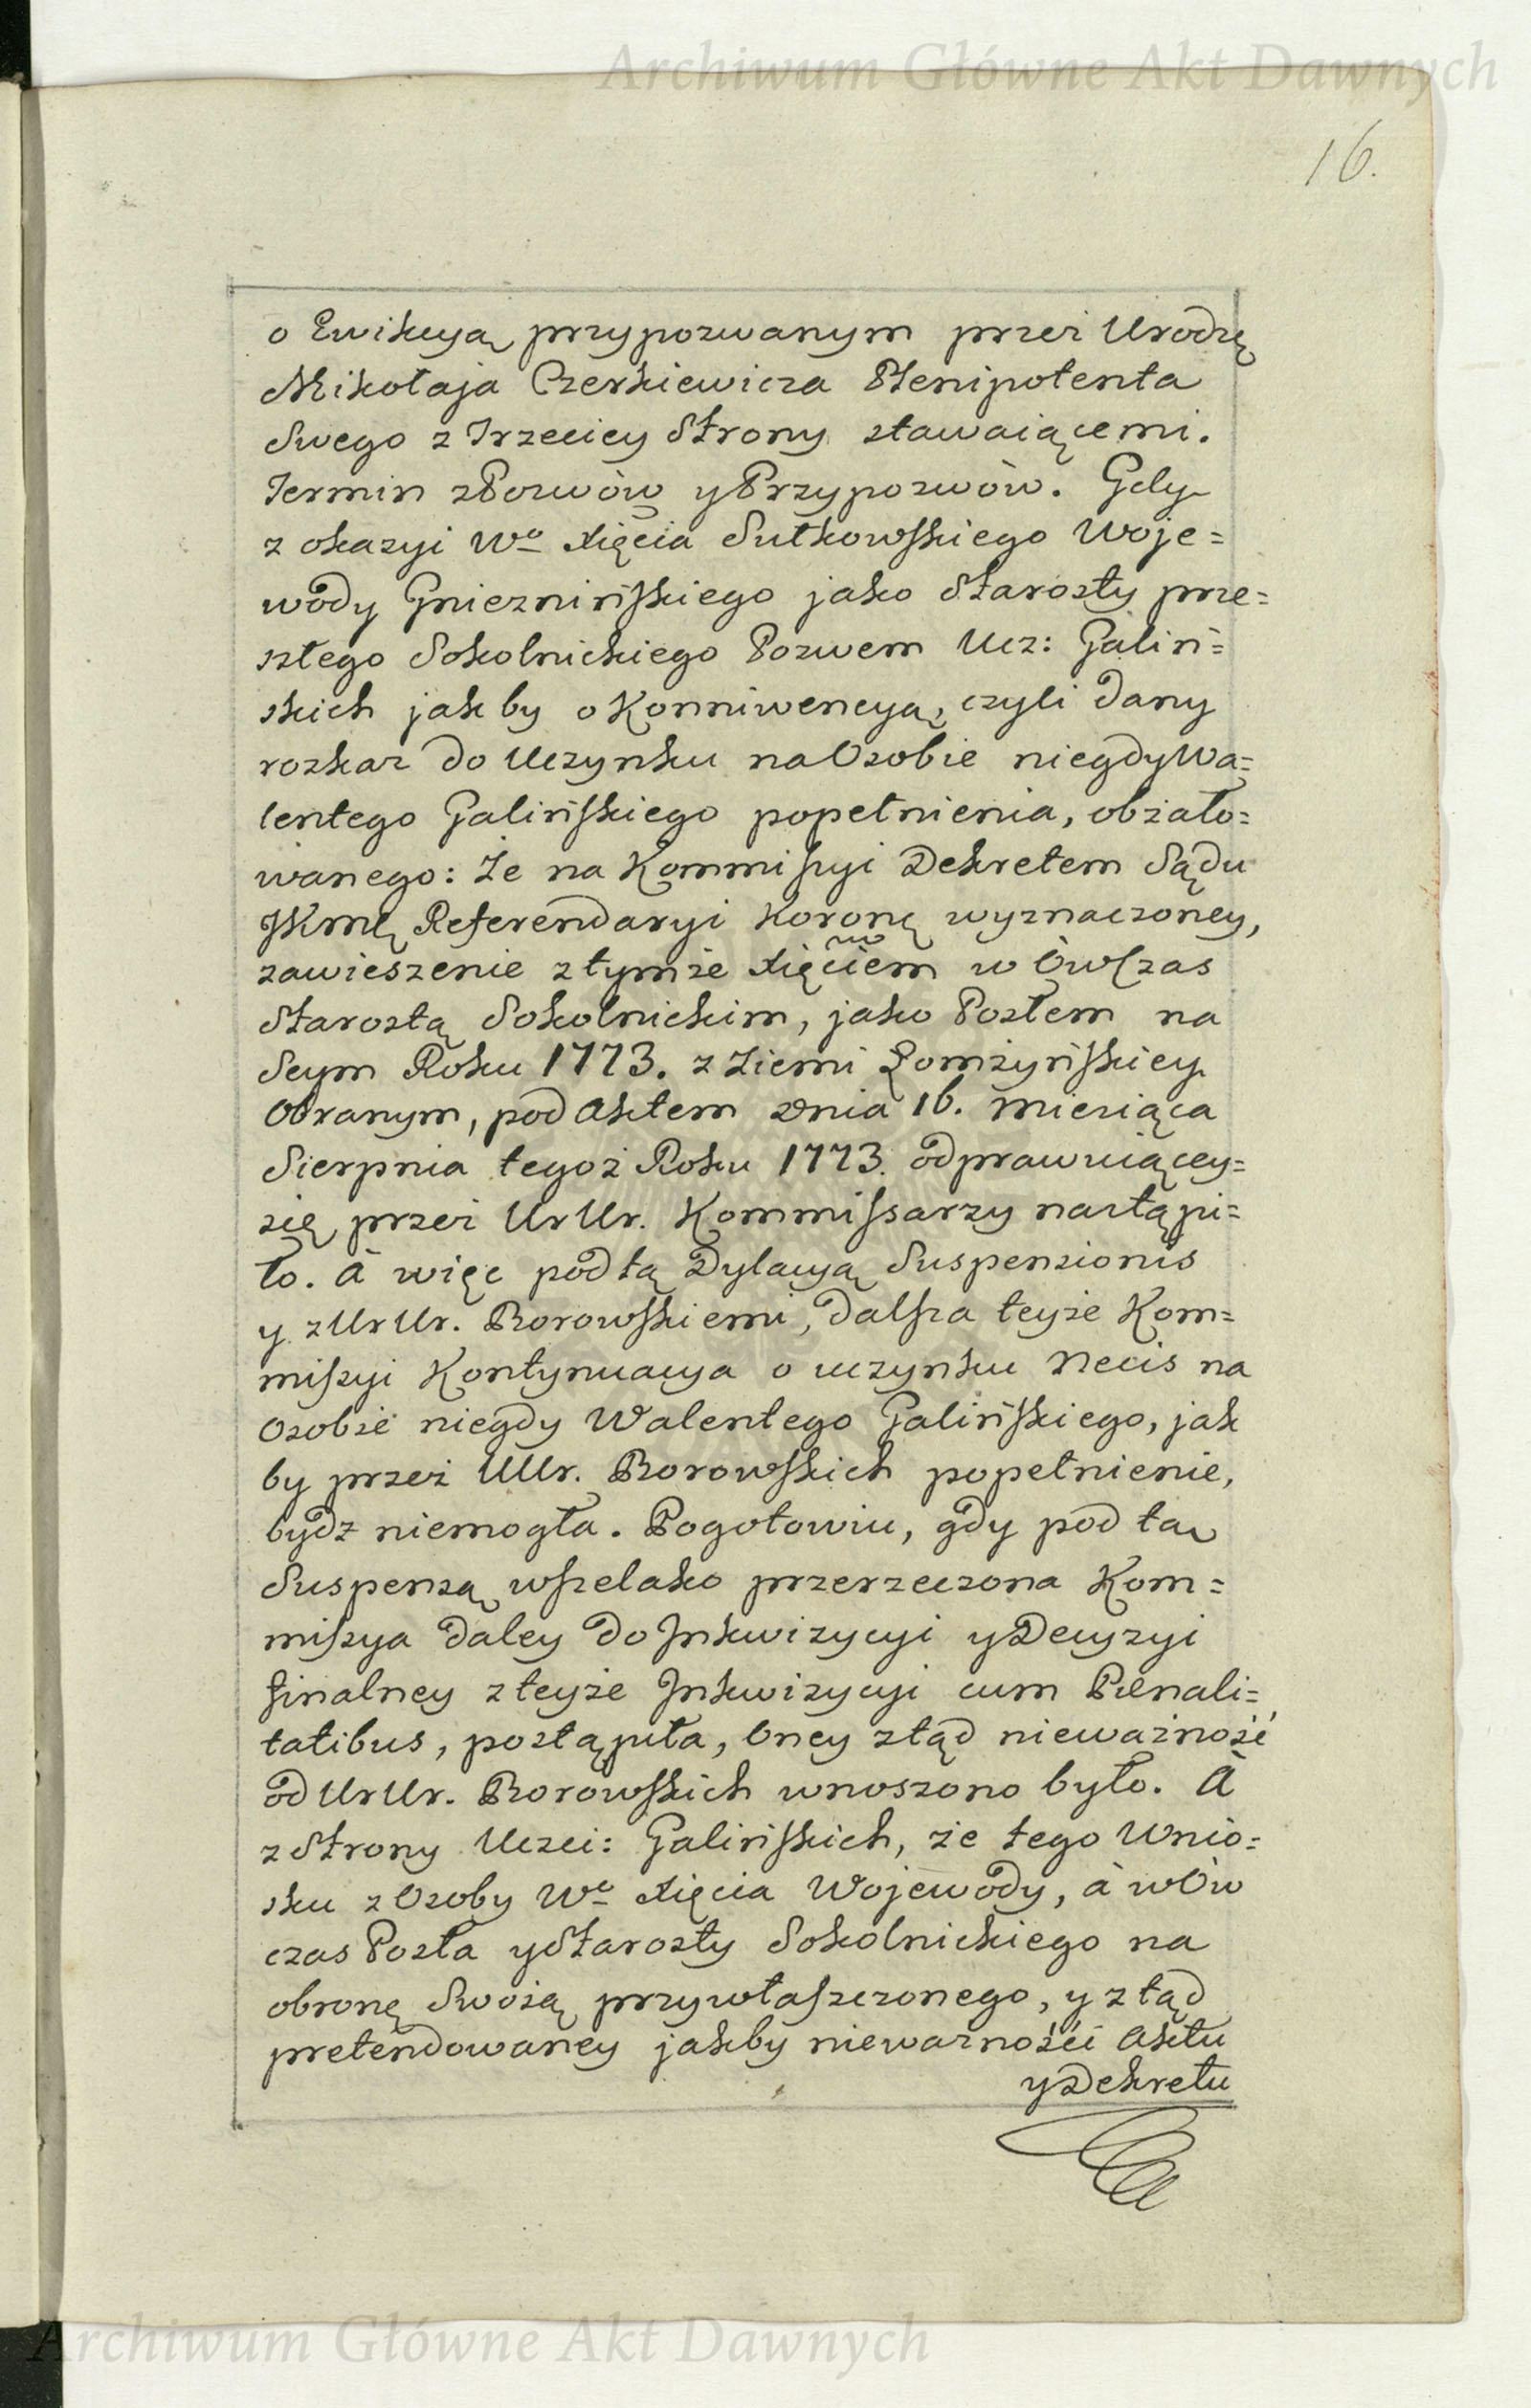 Archiwum Główne Akt Dawnych
16.
o Ewikcyą przypozwanym przez Urodzę
Mikołaja Czerkiewicza Plenipotenta
Swego z Trzeciey Strony stawaiącemi.
Termin z Pozwów y Przypozwów. Gdy
z okazyi Wo Xięcia Sułkowskiego Woje=
wody Gnieznińskiego jako Starosty prze=
szłego Sokolnickiego Pozwem Ucz: Galiń=
skich jakby o Konniwencyą, czyli dany
rozkaz do Uczynku na Osobie niegdy Wa=
lentego Galińskiego popełnienia, obżało=
wanego: Że na Kommissyi Dekretem Sądu
JKmę Referendaryi Koronę wyznaczoney,
zawieszenie z tymże Xięciem w Ówczas
Starostą Sokolnickim, jako Posłem na
Seym Roku 1773. z Ziemi Łomżyńskiey
Obranym, pod Aktem Dnia 16. Miesiąca
Sierpnia tegoż Roku 1773. odprawuiącey=
się przez UrUr. Kommissarzy nastąpi=
ło. à więc pod tą Dylacyą Suspensionis
y z UrUr. Borowskiemi, dalsza teyże Kom=
missyi Kontynuacya o uczynku Necis na
Osobie niegdy Walentego Galińskiego, jak
by przez UUr. Borowskich popełnienie,
bydz niemogła. Pogotowiu, gdy pod tą
Suspensą wszelako przerzeczona Kom=
missya daley do Inkwizycyi y Decyzyi
finalney z teyże Inkwizycyi cum Pœnali=
tatibus, postąpiła, Oney ztąd nieważność
od UrUr. Borowskich wnoszono było. À
z Strony Uczci: Galińskich, że tego Wnio=
sku z Osoby Wo Xięcia Wojewody, à w Ów
czas Posła y Starosty Sokolnickiego na
obronę Swoią przywłaszczonego, y ztąd
pretendowaney jakby nieważności Aktu
y Dekretu
Archiwum Główne Akt Dawnych